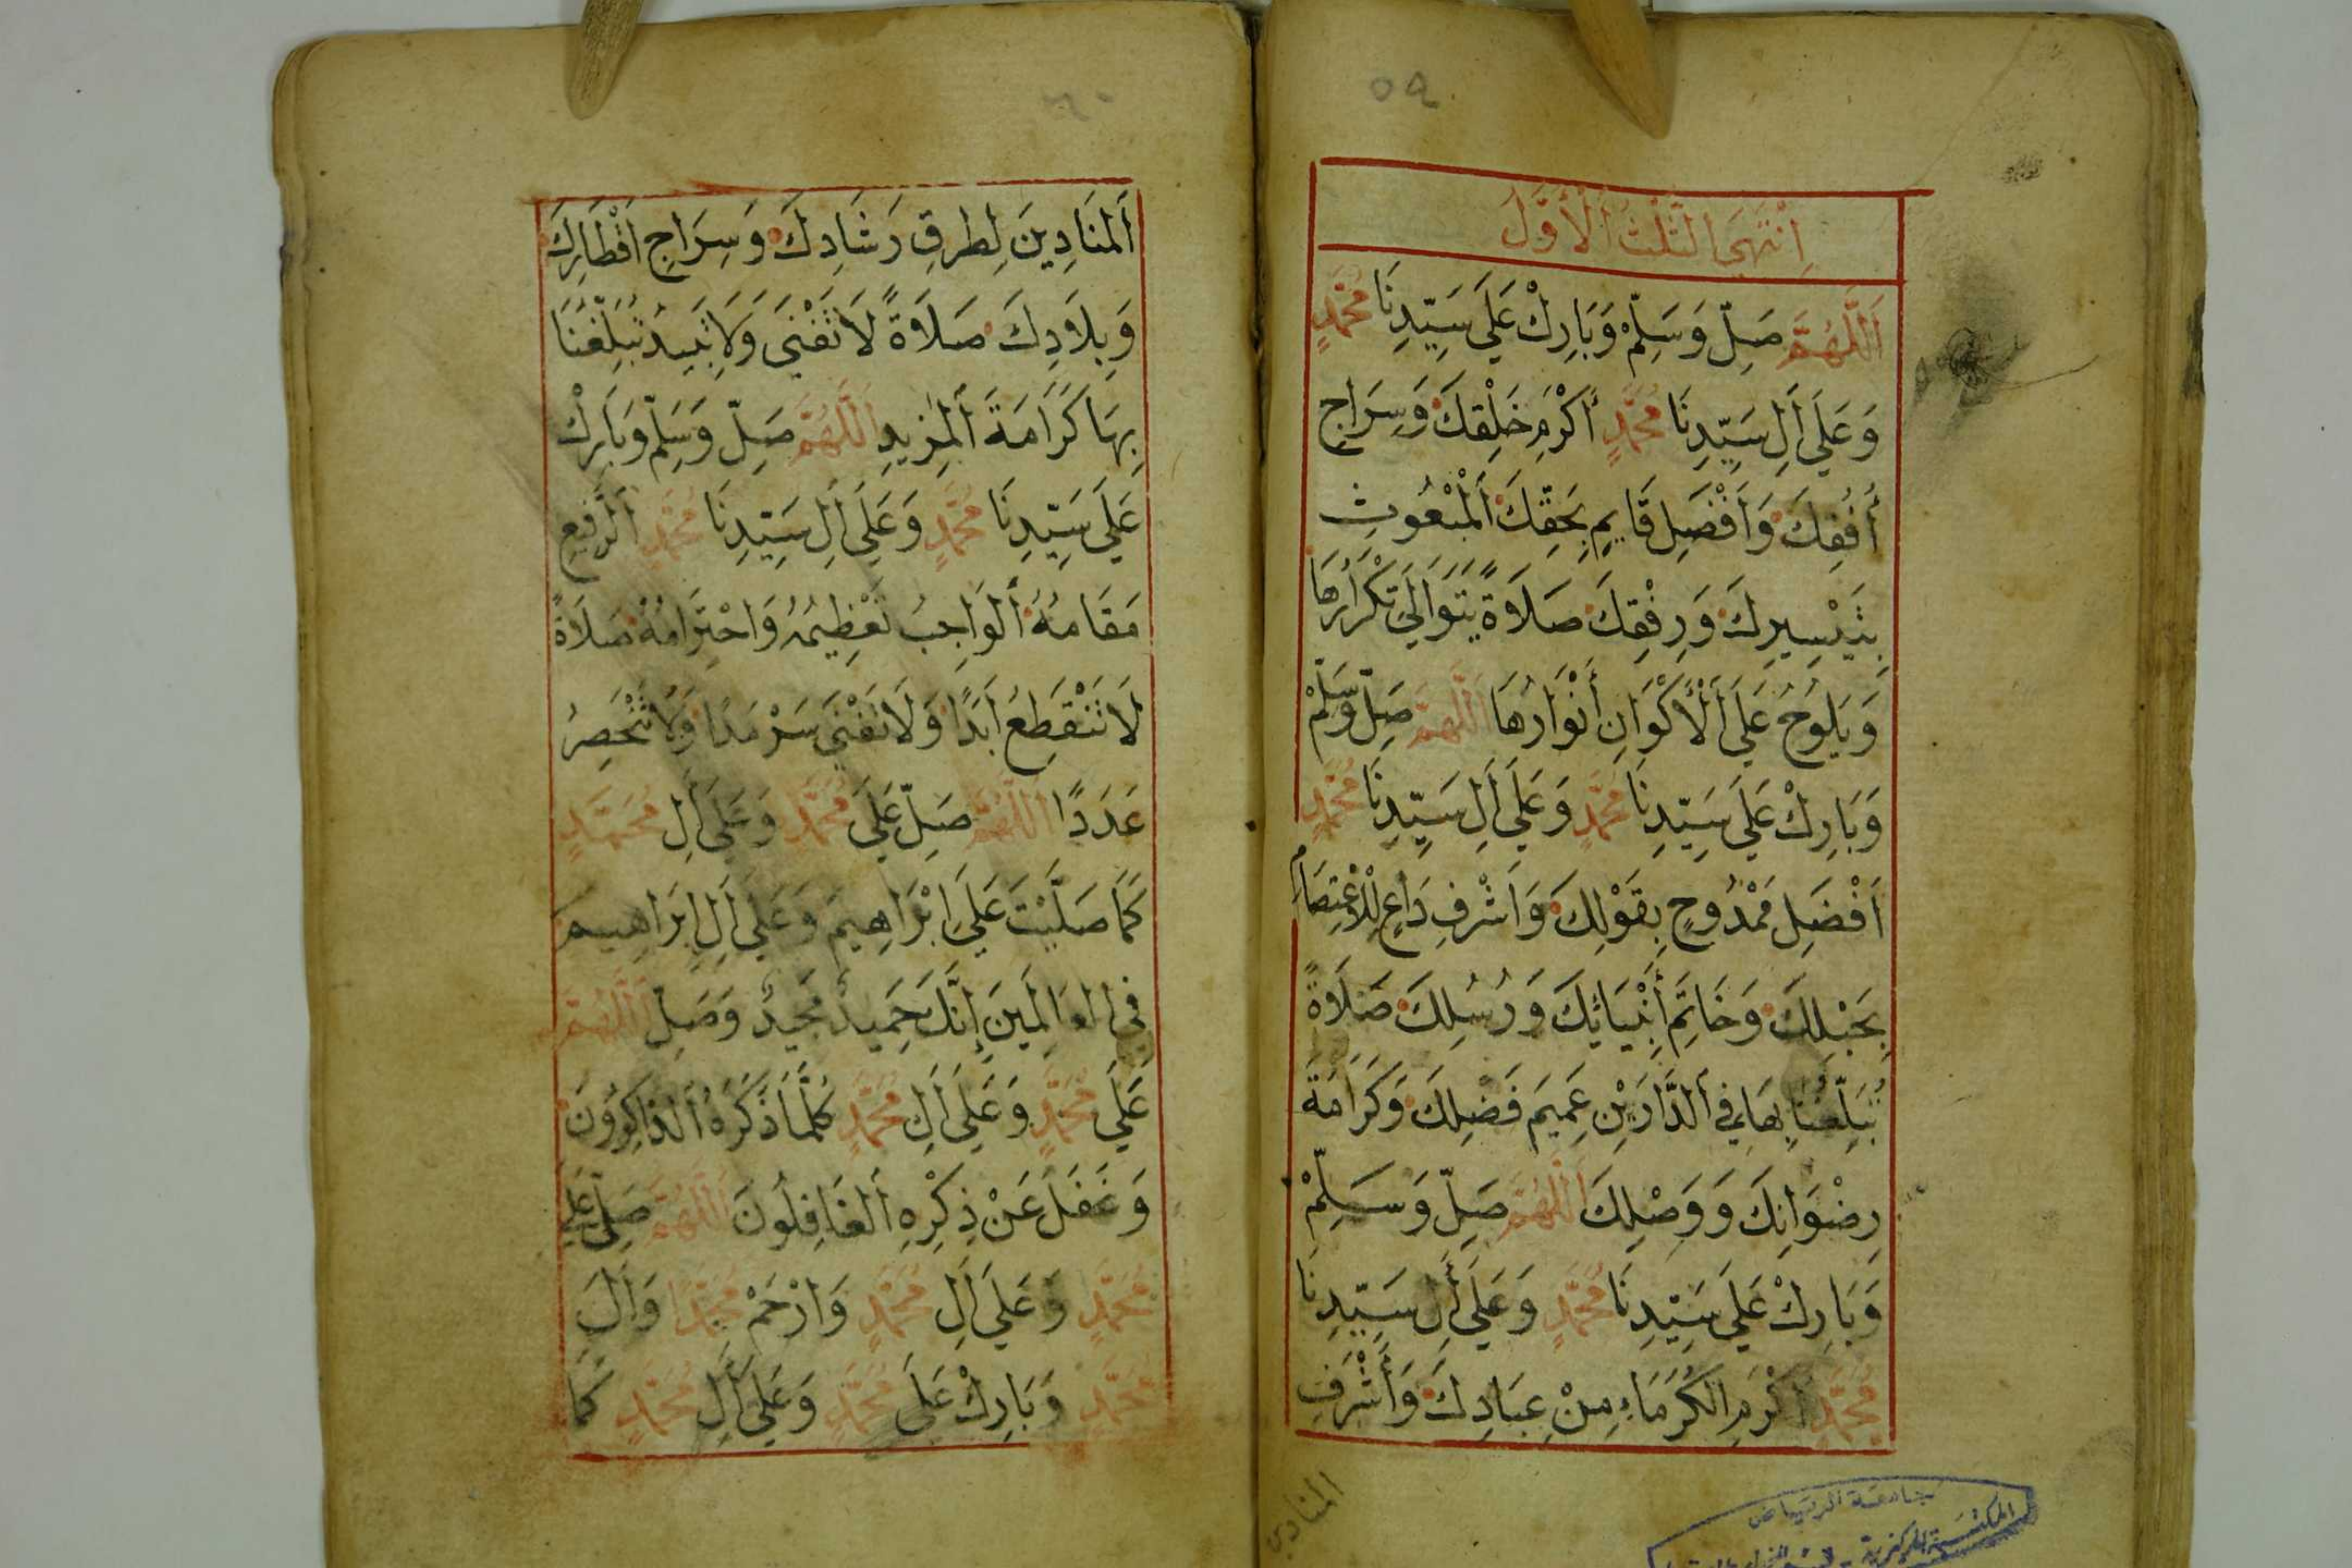 ٥٩
اِنْتَهَى الثُّلُثُ الْأَوَّلُ
اَللَّهُمَّ صَلِّ وَسَلِّمْ وَبَارِكْ عَلَى سَيِّدِنَا مُحَمَّدٍ
وَعَلَى اَلِ سَيِّدِنَا مُحَمَّدٍ أَكْرَمِ خَلْقِكَ وَسِرَاجِ
أُفُقِكَ وَاَفْضَلِ قَايِمٍ بِحَقِّكَ اَلْمَبْعُوثِ
بِتَيْسِيرِكَ وَرِفْقِكَ صَلَاةً يَتَوَالَى تَكْرَارُهَا
وَيَلُوحُ عَلَى اَلْأَكْوَانِ أَنْوَارُهَا اَللَّهُمَّ صَلِّ وَسَلِّمْ
وَبَارِكْ عَلَى سَيِّدِنَا مُحَمَّدٍ وَعَلَى اَلِ سَيِّدِنَا مُحَمَّدٍ
اَفْضَلِ مَمْدُوحٍ بِقَوْلِكَ وَاَشْرَفِ دَاعٍ لِلْاعْتِصَامِ
بِحَبْلِكَ وَخَاتَمِ أَنْبِيَائِكَ وَرُسُلِكَ صَلَاةً
تُبَلِّغُنَا بِهَا فِي اَلدَّارَيْنِ عَمِيمَ فَضْلِكَ وَكَرَامَةَ
رِضْوَانِكَ وَوَصْلِكَ اَللَّهُمَّ صَلِّ وَسَلِّمْ
وَبَارِكْ عَلَى سَيِّدِنَا مُحَمَّدٍ وَعَلَى أَلِ سَيِّدِنَا
مُحَمَّدٍ اَكْرَمِ الْكُرَمَاءِ مِنْ عِبَادِكَ وَأَشْرَفِ
المنادين
جامعة الرياض
المكتبة المركزية
٦٠
اَلْمُنَادِينَ لِطُرُقِ رَشَادِكَ وَسِرَاجِ اَقْطَارِكَ
وَبِلَادِكَ صَلَاةً لَا تَفْنَى وَلَا تَبِيدُ تُبَلِّغُنَا
بِهَا كَرَامَةَ اَلْمَزِيدِ اَللَّهُمَّ صَلِّ وَسَلِّمْ وَبَارِكْ
عَلَى سَيِّدِنَا مُحَمَّدٍ وَعَلَى اَلِ سَيِّدِنَا مُحَمَّدٍ اَلرَّفِيعِ
مَقَامُهُ أَلْوَاجِبُ تَعْظِيمُهُ وَاحْتِرَامُهُ صَلَاةً
لَا تَنْقَطِعُ اَبَدًا وَلَا تَفْنَى سَرْمَدًا وَلَا تَنْحَصِرُ
عَدَدًا اَللَّهُمَّ صَلِّ عَلَى مُحَمَّدٍ وَعَلَى اَلِ مُحَمَّدٍ
كَمَا صَلَّيْتَ عَلَى اِبْرَاهِيمَ وَعَلَى اَلِ اِبْرَاهِيمَ
فِي الْعَالَمِينَ إِنَّكَ حَمِيدٌ مَجِيدٌ وَصَلِّ اَللَّهُمَّ
عَلَى مُحَمَّدٍ وَعَلَى اَلِ مُحَمَّدٍ كُلَّمَا ذَكَرَهُ اَلذَّاكِرُونَ
وَغَفَلَ عَنْ ذِكْرِهِ اَلْغَافِلُونَ اَللَّهُمَّ صَلِّ عَلَى
مُحَمَّدٍ وَعَلَى اَلِ مُحَمَّدٍ وَارْحَمْ مُحَمَّدًا وَاَلَ
مُحَمَّدٍ وَبَارِكْ عَلَى مُحَمَّدٍ وَعَلَى اَلِ مُحَمَّدٍ كَمَا